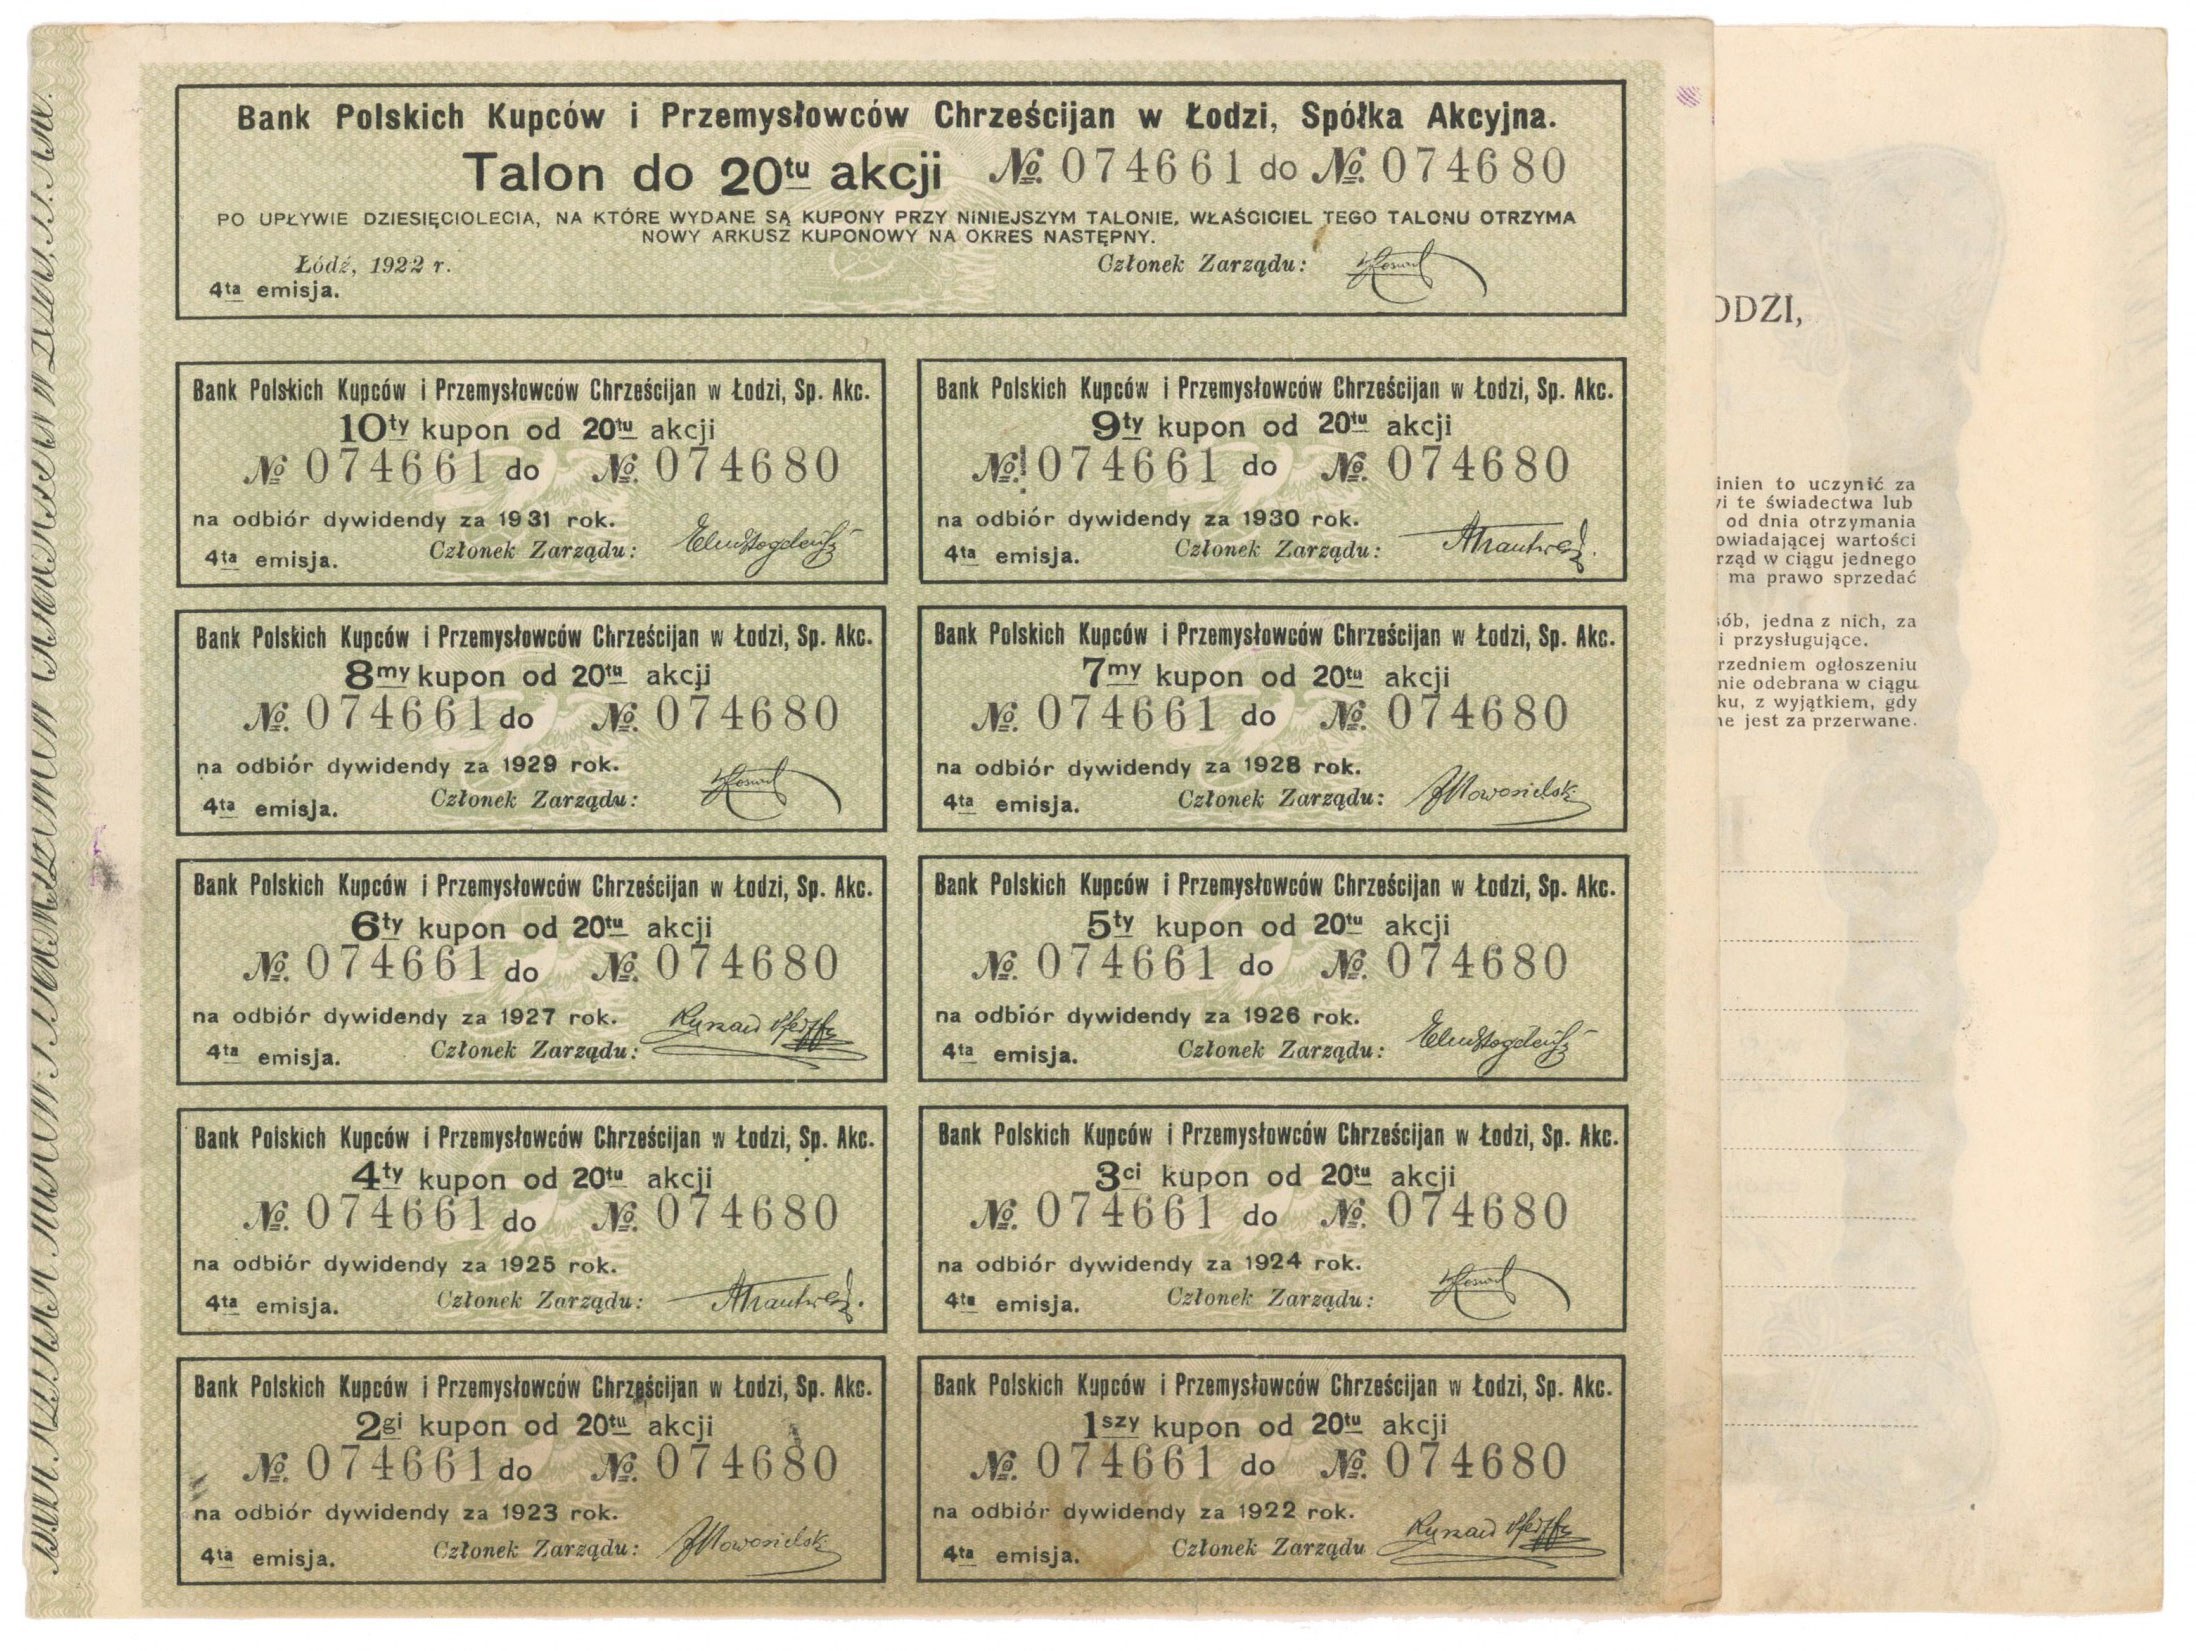 Bank Polskich Kupców i Przemysłowców Chrześcijan w Łodzi, Spółka Akcyjna.
Talon do 20tu akcji № 074661 do № 074680
PO UPŁYWIE DZIESIĘCIOLECIA, NA KTÓRE WYDANE SĄ KUPONY PRZY NINIEJSZYM TALONIE, WŁAŚCICIEL TEGO TALONU OTRZYMA
NOWY ARKUSZ KUPONOWY NA OKRES NASTĘPNY.
Łódź, 1922 r. Członek Zarządu:
4ta emisja.
Bank Polskich Kupców i Przemysłowców Chrześcijan w Łodzi, Sp. Akc.
10ty kupon od 20tu akcji
№ 074661 do №. 074680
na odbiór dywidendy za 1931 rok.
4ta emisja. Członek Zarządu:
Bank Polskich Kupców i Przemysłowców Chrześcijan w Łodzi, Sp. Akc.
9ty kupon od 20tu akcji
№. 074661 do №. 074680
na odbiór dywidendy za 1930 rok.
4ta emisja. Członek Zarządu:
Bank Polskich Kupców i Przemysłowców Chrześcijan w Łodzi, Sp. Akc.
8my kupon od 20tu akcji
№. 074661 do №. 074680
na odbiór dywidendy za 1929 rok.
4ta emisja. Członek Zarządu:
Bank Polskich Kupców i Przemysłowców Chrześcijan w Łodzi, Sp. Akc.
7my kupon od 20tu akcji
№. 074661 do №. 074680
na odbiór dywidendy za 1928 rok.
4ta emisja. Członek Zarządu:
Bank Polskich Kupców i Przemysłowców Chrześcijan w Łodzi, Sp. Akc.
6ty kupon od 20tu akcji
№. 074661 do №. 074680
na odbiór dywidendy za 1927 rok.
4ta emisja. Członek Zarządu:
Bank Polskich Kupców i Przemysłowców Chrześcijan w Łodzi, Sp. Akc.
5ty kupon od 20tu akcji
№. 074661 do №. 074680
na odbiór dywidendy za 1926 rok.
4ta emisja. Członek Zarządu:
Bank Polskich Kupców i Przemysłowców Chrześcijan w Łodzi, Sp. Akc.
4ty kupon od 20tu akcji
№. 074661 do №. 074680
na odbiór dywidendy za 1925 rok.
4ta emisja. Członek Zarządu:
Bank Polskich Kupców i Przemysłowców Chrześcijan w Łodzi, Sp. Akc.
3ci kupon od 20tu akcji
№. 074661 do №. 074680
na odbiór dywidendy za 1924 rok.
4ta emisja. Członek Zarządu:
Bank Polskich Kupców i Przemysłowców Chrześcijan w Łodzi, Sp. Akc.
2gi kupon od 20tu akcji
№. 074661 do №. 074680
na odbiór dywidendy za 1923 rok.
4ta emisja. Członek Zarządu:
Bank Polskich Kupców i Przemysłowców Chrześcijan w Łodzi, Sp. Akc.
1szy kupon od 20tu akcji
№. 074661 do №. 074680
na odbiór dywidendy za 1922 rok.
4ta emisja. Członek Zarządu
ODZI,
inien to uczynić za
wi te świadectwa lub
od dnia otrzymania
owiadającej wartości
rząd w ciągu jednego
ma prawo sprzedać
sób, jedna z nich, za
i przysługujące.
rzedniem ogłoszeniu
nie odebrana w ciągu
ku, z wyjątkiem, gdy
ne jest za przerwane.